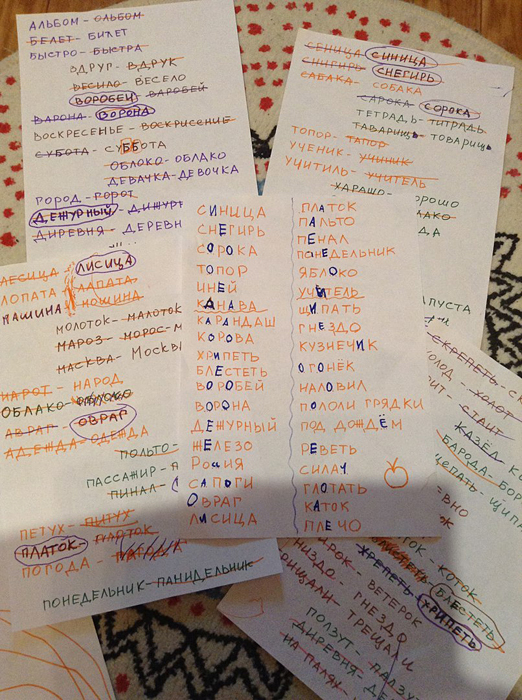 АЛЬБОМ - ОЛЬБОМ
БЕЛЕТ - БИЛЕТ
БЫСТРО - БЫСТРА
ВДРУГ - ВДРУК
ВЕСИЛО - ВЕСЕЛО
ВОРОБЕЙ - ВАРОБЕЙ
ВАРОНА - ВОРОНА
ВОСКРЕСЕНЬЕ - ВОСКРИСЕНИЕ
СУБОТА - СУББОТА
ОБЛОКО - ОБЛАКО
ДЕВАЧКА - ДЕВОЧКА
ГОРОД - ГОРОТ
ДЕЖУРНЫЙ - ДИЖУР
ДИРЕВНЯ - ДЕРЕВН
СЕНИЦА СИНИЦА
СНИГИРЬ СНЕГИРЬ
САБАКА - СОБАКА
САРОКА СОРОКА
ТЕТРАДЬ - ТИТРАДЬ
ТАВАРИЩЬ - ТОВАРИЩЬ
ТОПОР - ТАПОР
УЧЕНИК - УЧИНИК
УЧИТИЛЬ - УЧИТЕЛЬ
ХАРАШО - ОРОШО
АПУСТА
ЛЕСИЦА ЛИСИЦА
ЛОПАТА ЛАПАТА
МАШИНА МОШИНА
МОЛОТОК - МАЛОТОК
МАРОЗ - МОРОС - М
МАСКВА - МОСКВЫ
НАРОТ - НАРОД
ОБЛАКО -
АВРАГ - ОВРАГ
АДЕЖДА - ОДЕЖДА
ПОЛЬТО -
ПАССАЖИР - П
ПИНАЛ -
ПЕТУХ - ПИТУХ
ПЛАТОК - ПЛОТОК
ПОГОДА - ПАГОДА
ПОНЕДЕЛЬНИК - ПАНИДЕЛЬНИК
СИНИЦА
СНЕГИРЬ
СОРОКА
ТОПОР
ИНЕЙ
КАНАВА
КАРАНДАШ
КОРОВА
ХРИПЕТЬ
БЛЕСТЕТЬ
ВОРОБЕЙ
ВОРОНА
ДЕЖУРНЫЙ
ЖЕЛЕЗО
РОССИЯ
САПОГИ
ОВРАГ
ЛИСИЦА
ПЛАТОК
ПАЛЬТО
ПЕНАЛ
ПОНЕДЕЛЬНИК
ЯБЛОКО
УЧИТЕЛЬ
ЩИПАТЬ
ГНЕЗДО
КУЗНЕЧИК
ОГОНЁК
НАЛОВИЛ
ПОЛОЛИ ГРЯДКИ
ПОД ДОЖДЁМ
РЕВЕТЬ
СИЛАЧ
ГЛОТАТЬ
КАТОК
ПЛЕЧО
СКРЕПЕТЬ - С
ОЛОД - ХОЛОТ
СТАИТ
КАЗЁЛ
БАРОДА - БОР
ЩЕПАТЬ - ЩИП
КОТОК
БЛЕСТЕТЬ
ВЕТЕРОК
ХРЕПЕТЬ ХРИПЕТЬ
НИЗДО - ГНЕЗДО
РИЩАЛИ - ТРЕЩАЛИ
ПОЛЗУТ - ПАЛЗУТ
ДИРЕВНЯ - ДЕ
НА ПАЛЯХ